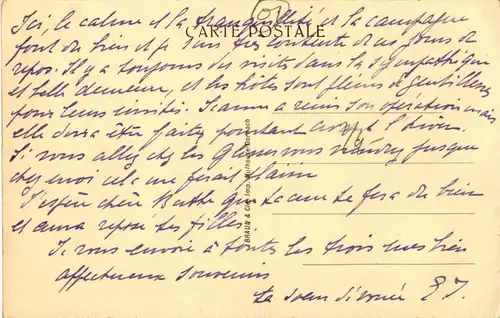 Ici, le calme et la tranquillité et la campagne
CARTE POSTALE
font du bien et je suis très contente de ces jours de
repos. Il y a toujours des visites dans la sympathique
et belle demeure, et les hôtes sont pleins de gentillesse
pour leurs invités. a remis son opération mais
elle devra être faite pourtant avant l'hiver.
Si vous allez chez les vous jusque
chez moi cela me ferait plaisir
J'espère chère que ta cure te fera du bien
et aura reposé tes filles.
Je vous envoie à toutes les trois mes bien
affectueux souvenirs
ta soeur
BRAUN & Cie, Imp., Mulhouse-Dornach